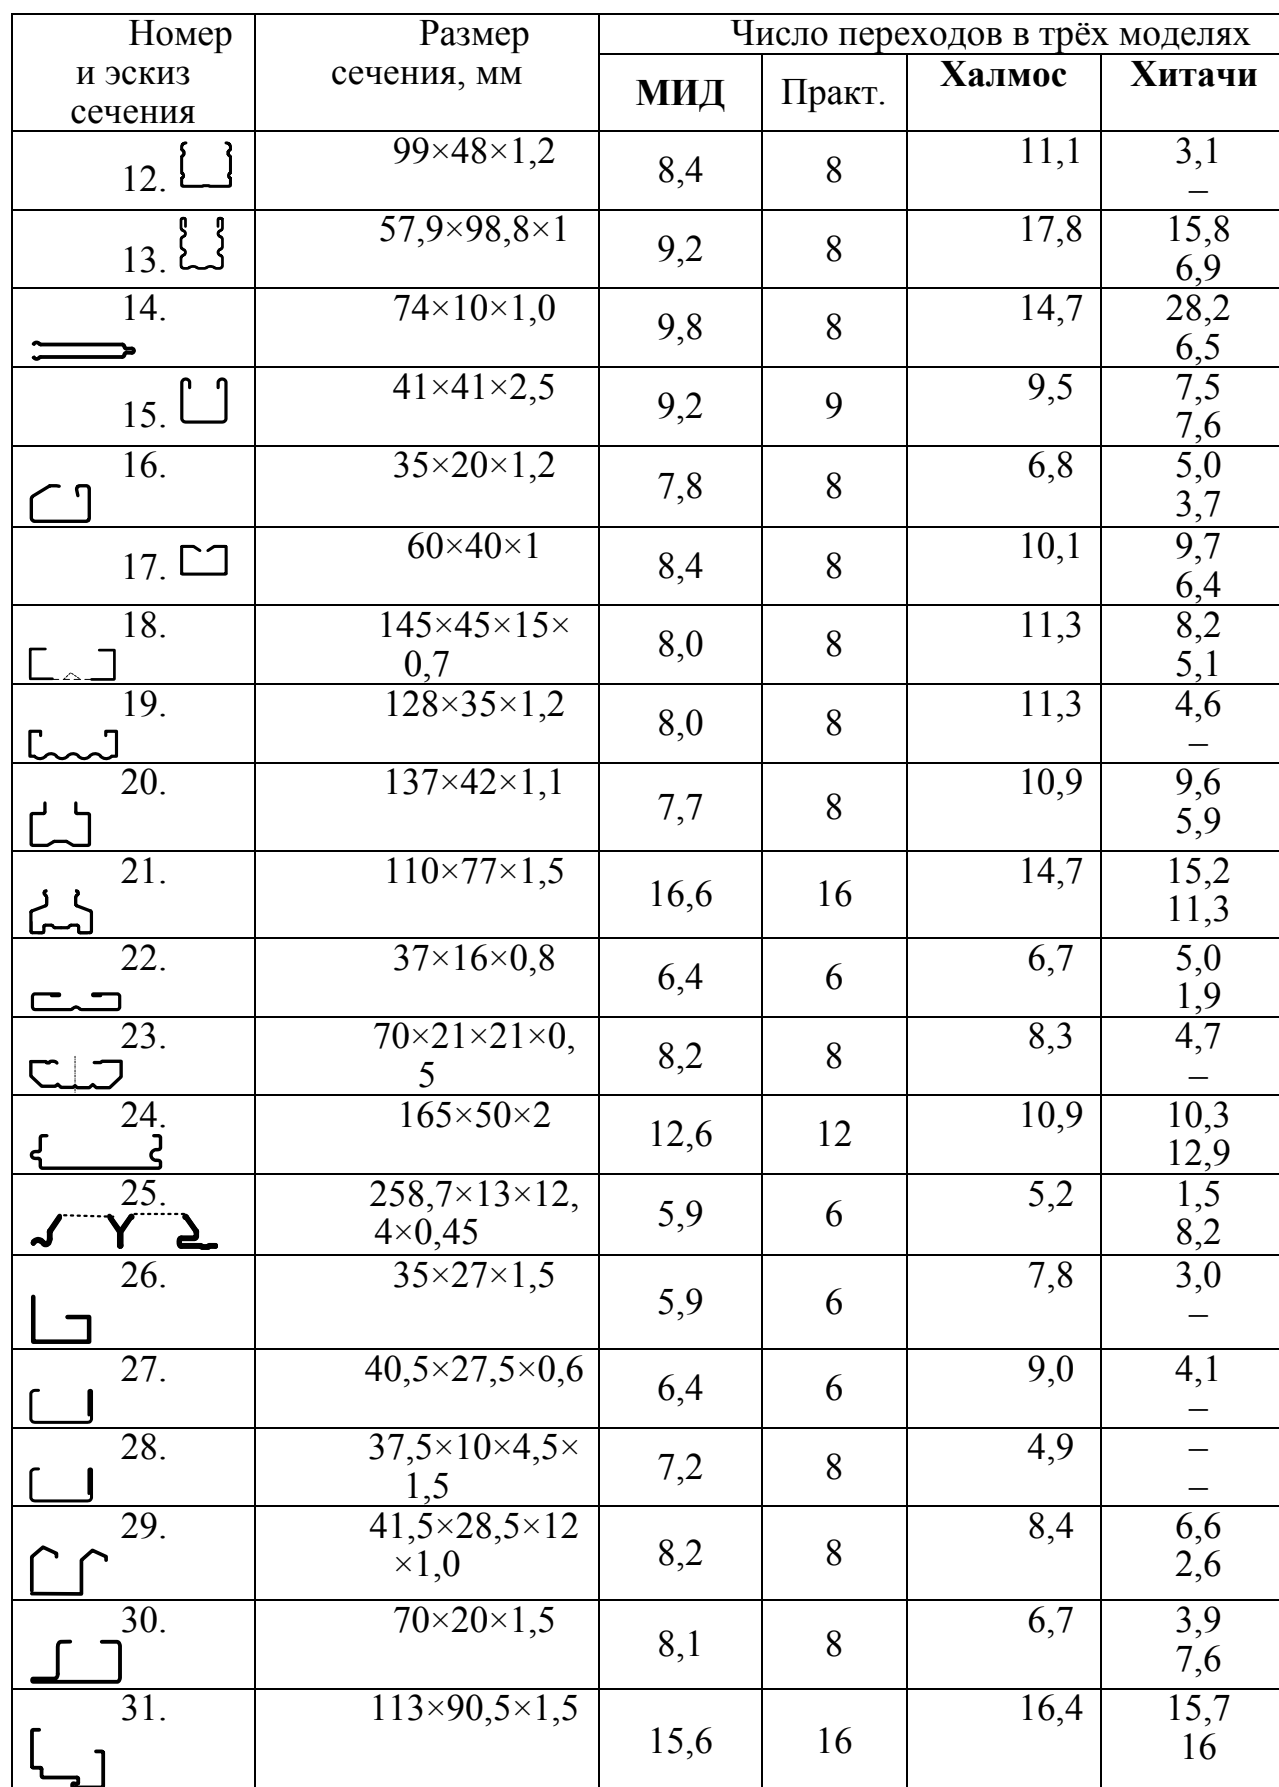 Номер и эскиз сечения Размер сечения, мм Число переходов в трёх моделях
МИД Практ. Халмос Хитачи
12. 99×48×1,2 8,4 8 11,1 3,1
–
13. 57,9×98,8×1 9,2 8 17,8 15,8
6,9
14. 74×10×1,0 9,8 8 14,7 28,2
6,5
15. 41×41×2,5 9,2 9 9,5 7,5
7,6
16. 35×20×1,2 7,8 8 6,8 5,0
3,7
17. 60×40×1 8,4 8 10,1 9,7
6,4
18. 145×45×15× 8,0 8 11,3 8,2
0,7 5,1
19. 128×35×1,2 8,0 8 11,3 4,6
–
20. 137×42×1,1 7,7 8 10,9 9,6
5,9
21. 110×77×1,5 16,6 16 14,7 15,2
11,3
22. 37×16×0,8 6,4 6 6,7 5,0
1,9
23. 70×21×21×0, 8,2 8 8,3 4,7
5 –
24. 165×50×2 12,6 12 10,9 10,3
12,9
25. 258,7×13×12, 5,9 6 5,2 1,5
4×0,45 8,2
26. 35×27×1,5 5,9 6 7,8 3,0
–
27. 40,5×27,5×0,6 6,4 6 9,0 4,1
–
28. 37,5×10×4,5× 7,2 8 4,9 –
1,5 –
29. 41,5×28,5×12 8,2 8 8,4 6,6
×1,0 2,6
30. 70×20×1,5 8,1 8 6,7 3,9
7,6
31. 113×90,5×1,5 15,6 16 16,4 15,7
16